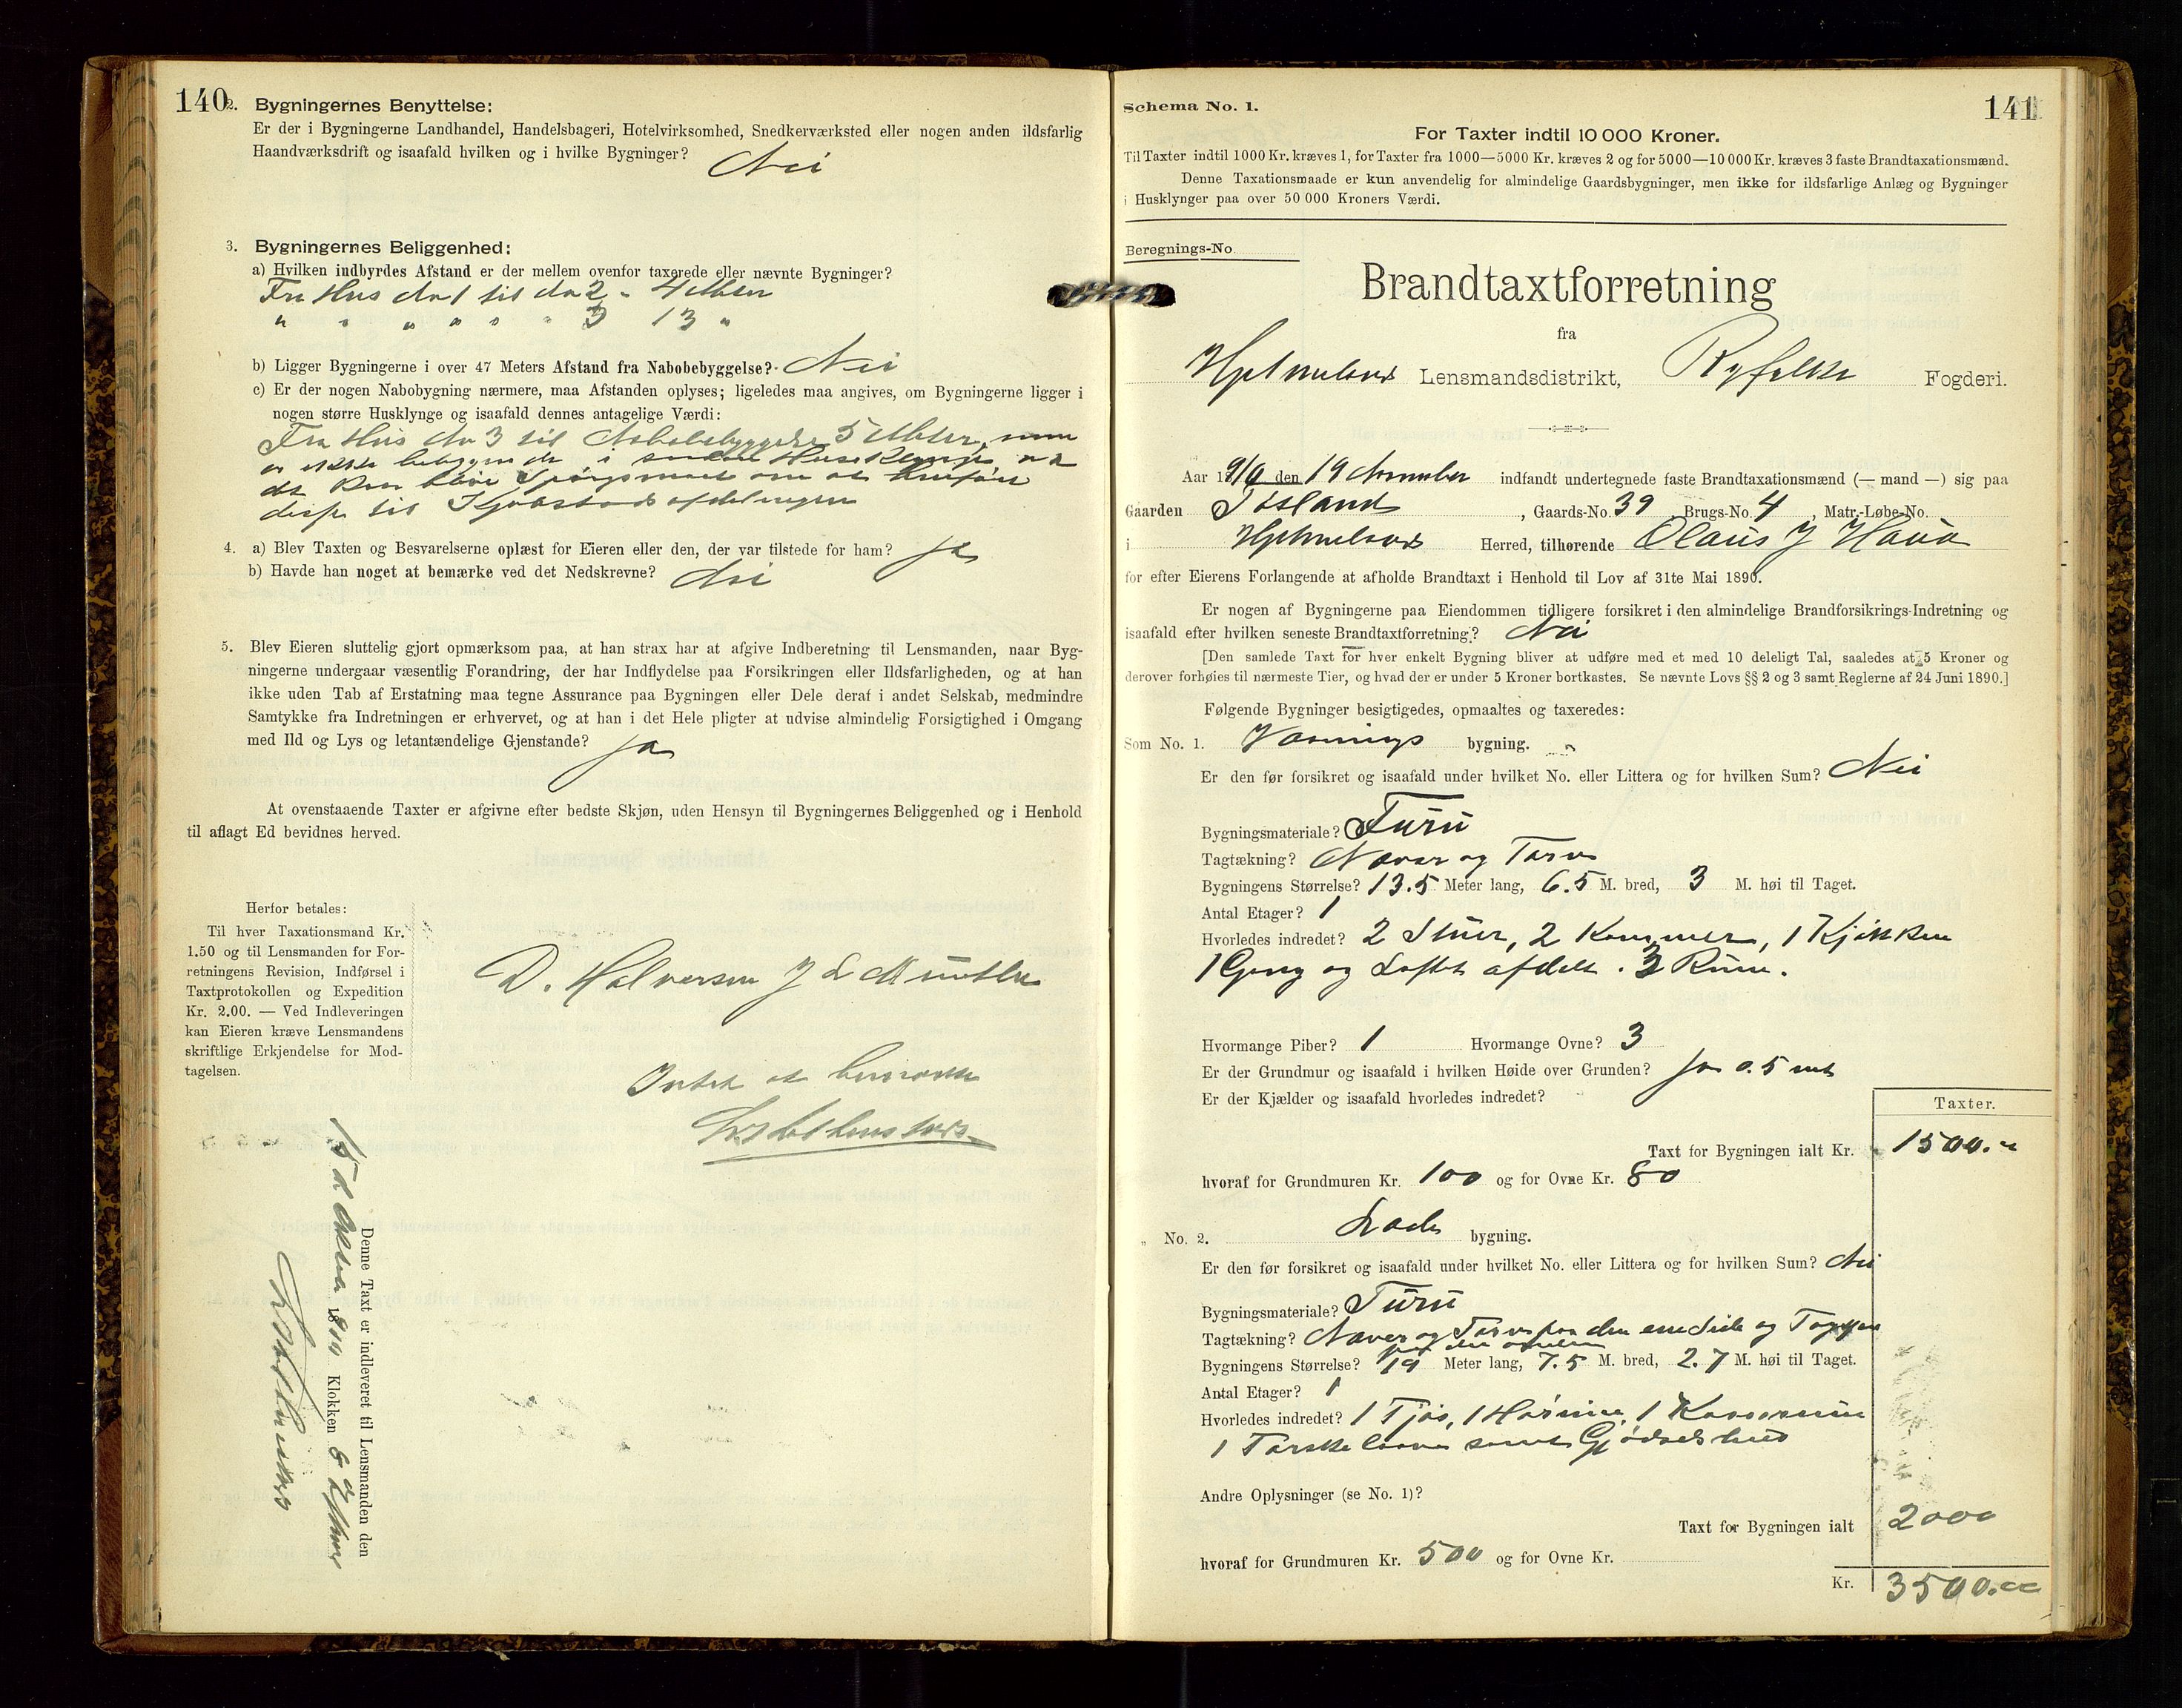 140
2. Bygningernes Benyttelse:
Er der i Bygningerne Landhandel, Handelsbageri, Hotelvirksomhed, Snedkerværksted eller nogen anden ildsfarlig
Haandværksdrift og isaafald hvilken og i hvilke Bygninger? Nei
3. Bygningernes Beliggenhed:
a) Hvilken indbyrdes Afstand er der mellem ovenfor taxerede eller nævnte Bygninger?
Fra Hus No 1 til No 2 - 4 Meter
" " " " " " 3 13 "
b) Ligger Bygningerne i over 47 Meters Afstand fra Nabobebyggelse? Nei
c) Er der nogen Nabobygning nærmere, maa Afstanden oplyses; ligeledes maa angives, om Bygningerne ligger i
nogen større Husklynge og isaafald dennes antagelige Værdi:
Fra Hus No 3 til Nabobebyggelse 5 Meter, men
er ikke i saadan Husklynge at
det kan blive Spørgsmaal om at henføre
til Kjøbstadsafdelingen
4. a) Blev Taxten og Besvarelserne oplæst for Eieren eller den, der var tilstede for ham? Ja
b) Havde han noget at bemærke ved det Nedskrevne? Nei
5. Blev Eieren sluttelig gjort opmærksom paa, at han strax har at afgive Indberetning til Lensmanden, naar Byg-
ningerne undergaar væsentlig Forandring, der har Indflydelse paa Forsikringen eller Ildsfarligheden, og at han
ikke uden Tab af Erstatning maa tegne Assurance paa Bygningen eller Dele deraf i andet Selskab, medmindre
Samtykke fra Indretningen er erhvervet, og at han i det Hele pligter at udvise almindelig Forsigtighed i Omgang
med Ild og Lys og letantændelige Gjenstande? Ja
At ovenstaaende Taxter er afgivne efter bedste Skjøn, uden Hensyn til Bygningernes Beliggenhed og i Henhold
til aflagt Ed bevidnes herved.
Herfor betales:
Til hver Taxationsmand Kr.
1.50 og til Lensmanden for For-
retningens Revision, Indførsel i
Taxtprotokollen og Expedition
Kr. 2.00. — Ved Indleveringen
kan Eieren kræve Lensmandens
skriftlige Erkjendelse for Mod-
tagelsen.
D. Halvorsen J L Munthe
Intet at bemærke
Denne Taxt er indleveret til Lensmanden den
15 d 1910 Klokken 6
Schema No. 1.
141
For Taxter indtil 10 000 Kroner.
Til Taxter indtil 1000 Kr. kræves 1, for Taxter fra 1000—5000 Kr. kræves 2 og for 5000—10 000 Kr. kræves 3 faste Brandtaxationsmænd.
Denne Taxationsmaade er kun anvendelig for almindelige Gaardsbygninger, men ikke for ildsfarlige Anlæg og Bygninger
i Husklynger paa over 50 000 Kroners Værdi.
Beregnings-No
Brandtaxtforretning
fra
Hjelmeland Lensmandsdistrikt, Ryfylke Fogderi.
Aar 1910 den 19 November indfandt undertegnede faste Brandtaxationsmænd (— mand —) sig paa
Gaarden Jøsland, Gaards-No. 39, Brugs-No. 4, Matr.-Løbe-No.
i Hjelmeland Herred, tilhørende Olaus J Haua
for efter Eierens Forlangende at afholde Brandtaxt i Henhold til Lov af 31te Mai 1890.
Er nogen af Bygningerne paa Eiendommen tidligere forsikret i den almindelige Brandforsikrings-Indretning og
isaafald efter hvilken seneste Brandtaxtforretning? Nei
[Den samlede Taxt for hver enkelt Bygning bliver at udføre med et med 10 deleligt Tal, saaledes at 5 Kroner og
derover forhøies til nærmeste Tier, og hvad der er under 5 Kroner bortkastes. Se nævnte Lovs §§ 2 og 3 samt Reglerne af 24 Juni 1890.]
Følgende Bygninger besigtigedes, opmaaltes og taxeredes:
Som No. 1. Vaanings bygning.
Er den før forsikret og isaafald under hvilket No. eller Littera og for hvilken Sum? Nei
Bygningsmateriale? Furu
Tagtækning? Næver og Torv
Bygningens Størrelse? 13.5 Meter lang, 6.5 M. bred, 3 M. høi til Taget.
Antal Etager? 1
Hvorledes indredet? 2 Stuer, 2 Kammer, 1 Kjøkken
1 Gang og Loftet afdelt. 3 Rum.
Hvormange Piber? 1 Hvormange Ovne? 3
Er der Grundmur og isaafald i hvilken Høide over Grunden? Ja 0.5 mt
Er der Kjælder og isaafald hvorledes indredet?
Taxter.
Taxt for Bygningen ialt Kr. 1500.-
hvoraf for Grundmuren Kr. 100 og for Ovne Kr. 80
" No. 2. Lade bygning.
Er den før forsikret og isaafald under hvilket No. eller Littera og for hvilken Sum? Nei
Bygningsmateriale? Furu
Tagtækning? Næver og Torv paa den ene Side og
paa den anden
Bygningens Størrelse? 19 Meter lang, 7.5 M. bred, 2.7 M. høi til Taget.
Antal Etager? 1
Hvorledes indredet? 1 Fjøs, 1 Hørum, 1 Kornrum
1 Tærskelaave samt Gjødselshus
Andre Oplysninger (se No. 1)?
Taxt for Bygningen ialt 2000
hvoraf for Grundmuren Kr. 500 og for Ovne Kr.
Kr. 3500.00